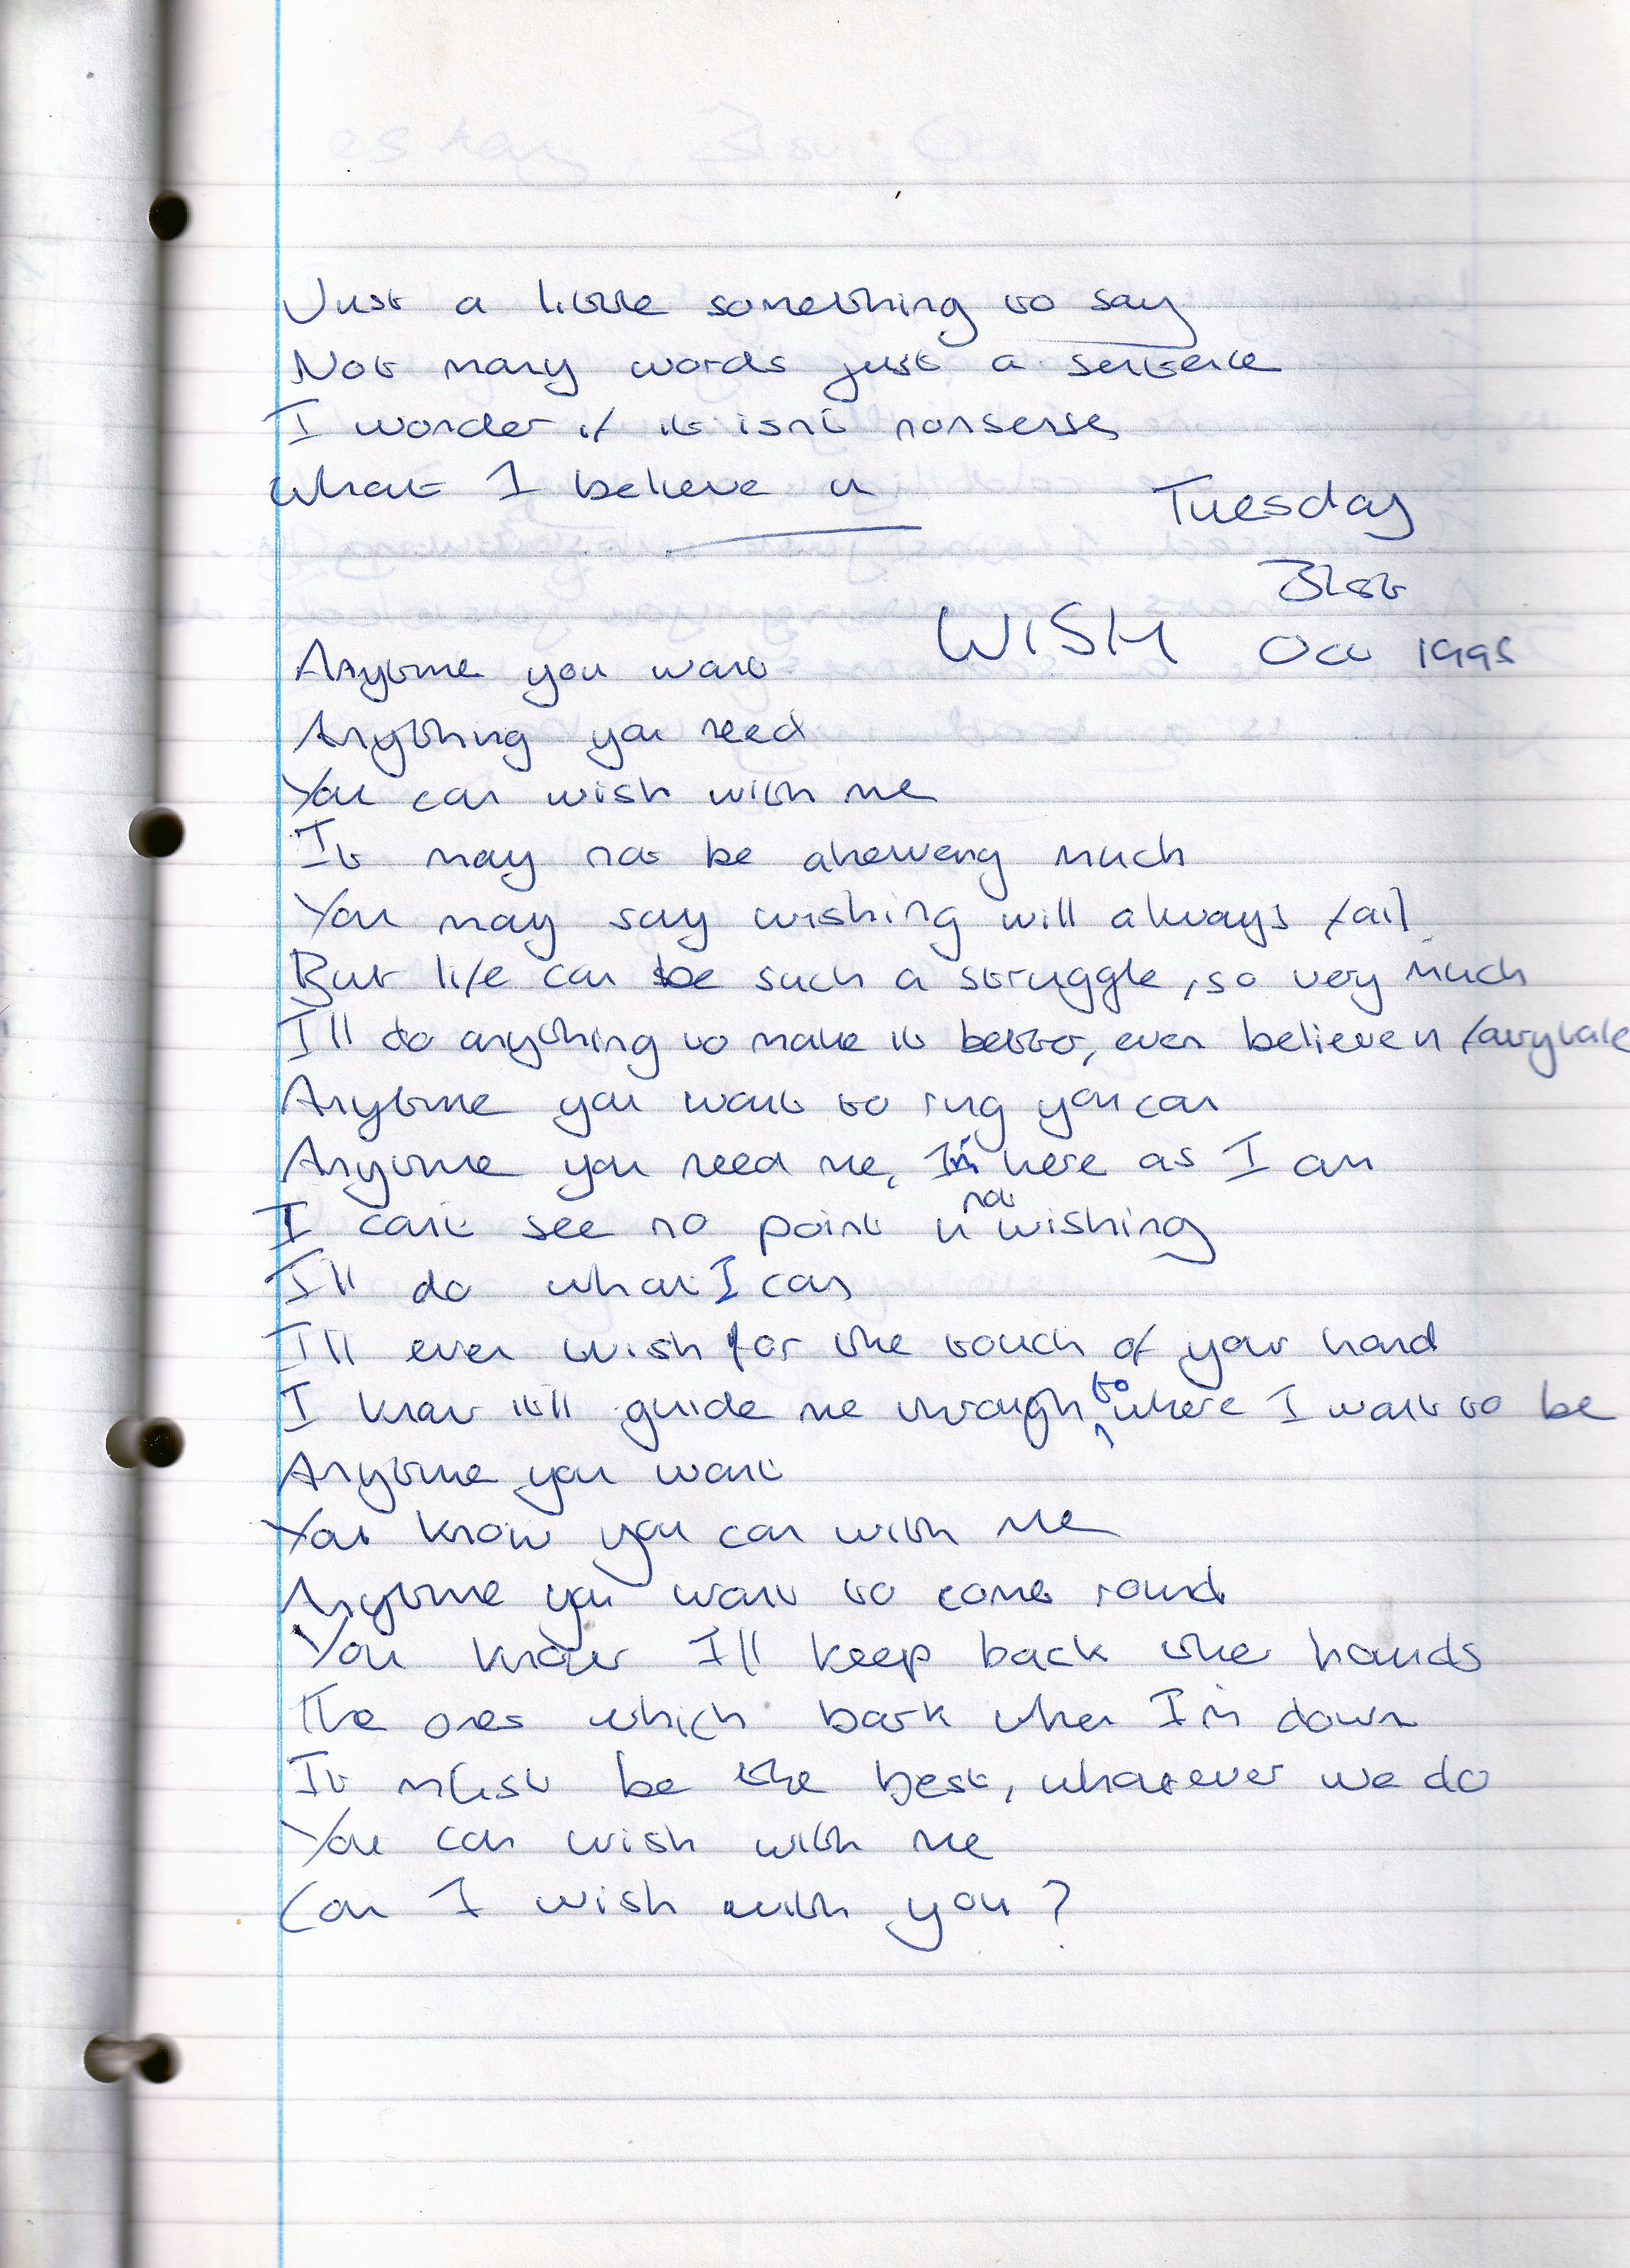 Just a little something to say
Not many words just a sentence
I wonder if it isn't nonsense
What I believe in
Tuesday
31st
Oct 1995
WISH
Anytime you want
Anything you need
You can wish with me
It may not be much
You may say wishing will always fail
But life can be such a struggle, so very much
I'll do anything to make it better, even believe in fairytale
Anytime you want to ring you can
Anytime you need me, I'm here as I am
I can't see no point in not wishing
I'll do what I can
I'll even wish for the touch of your hand
I know it'll guide me through to where I want to be
Anytime you want
You know you can with me
Anytime you want to come round
You know I'll keep back the hounds
The ones which bark when I'm down
It must be the best, whatever we do
You can wish with me
Can I wish with you?